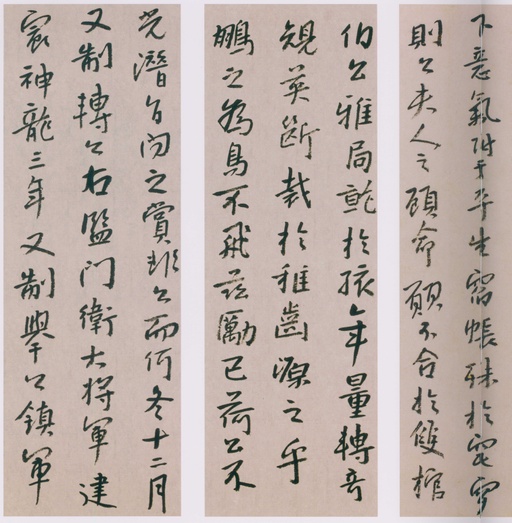 下惡氣附于平生宿帳殊於窀穸
則公夫人之顧命願不合於雙棺
伯公雅局於孩年量轉奇
規英斷裁於稚齒源之乎
鵬之為鳥不飛茲勵已荷公不
光潛之賞非公而何冬十二月
又制轉公右監門衛大將軍建
宸神龍三年又制舉公鎮軍